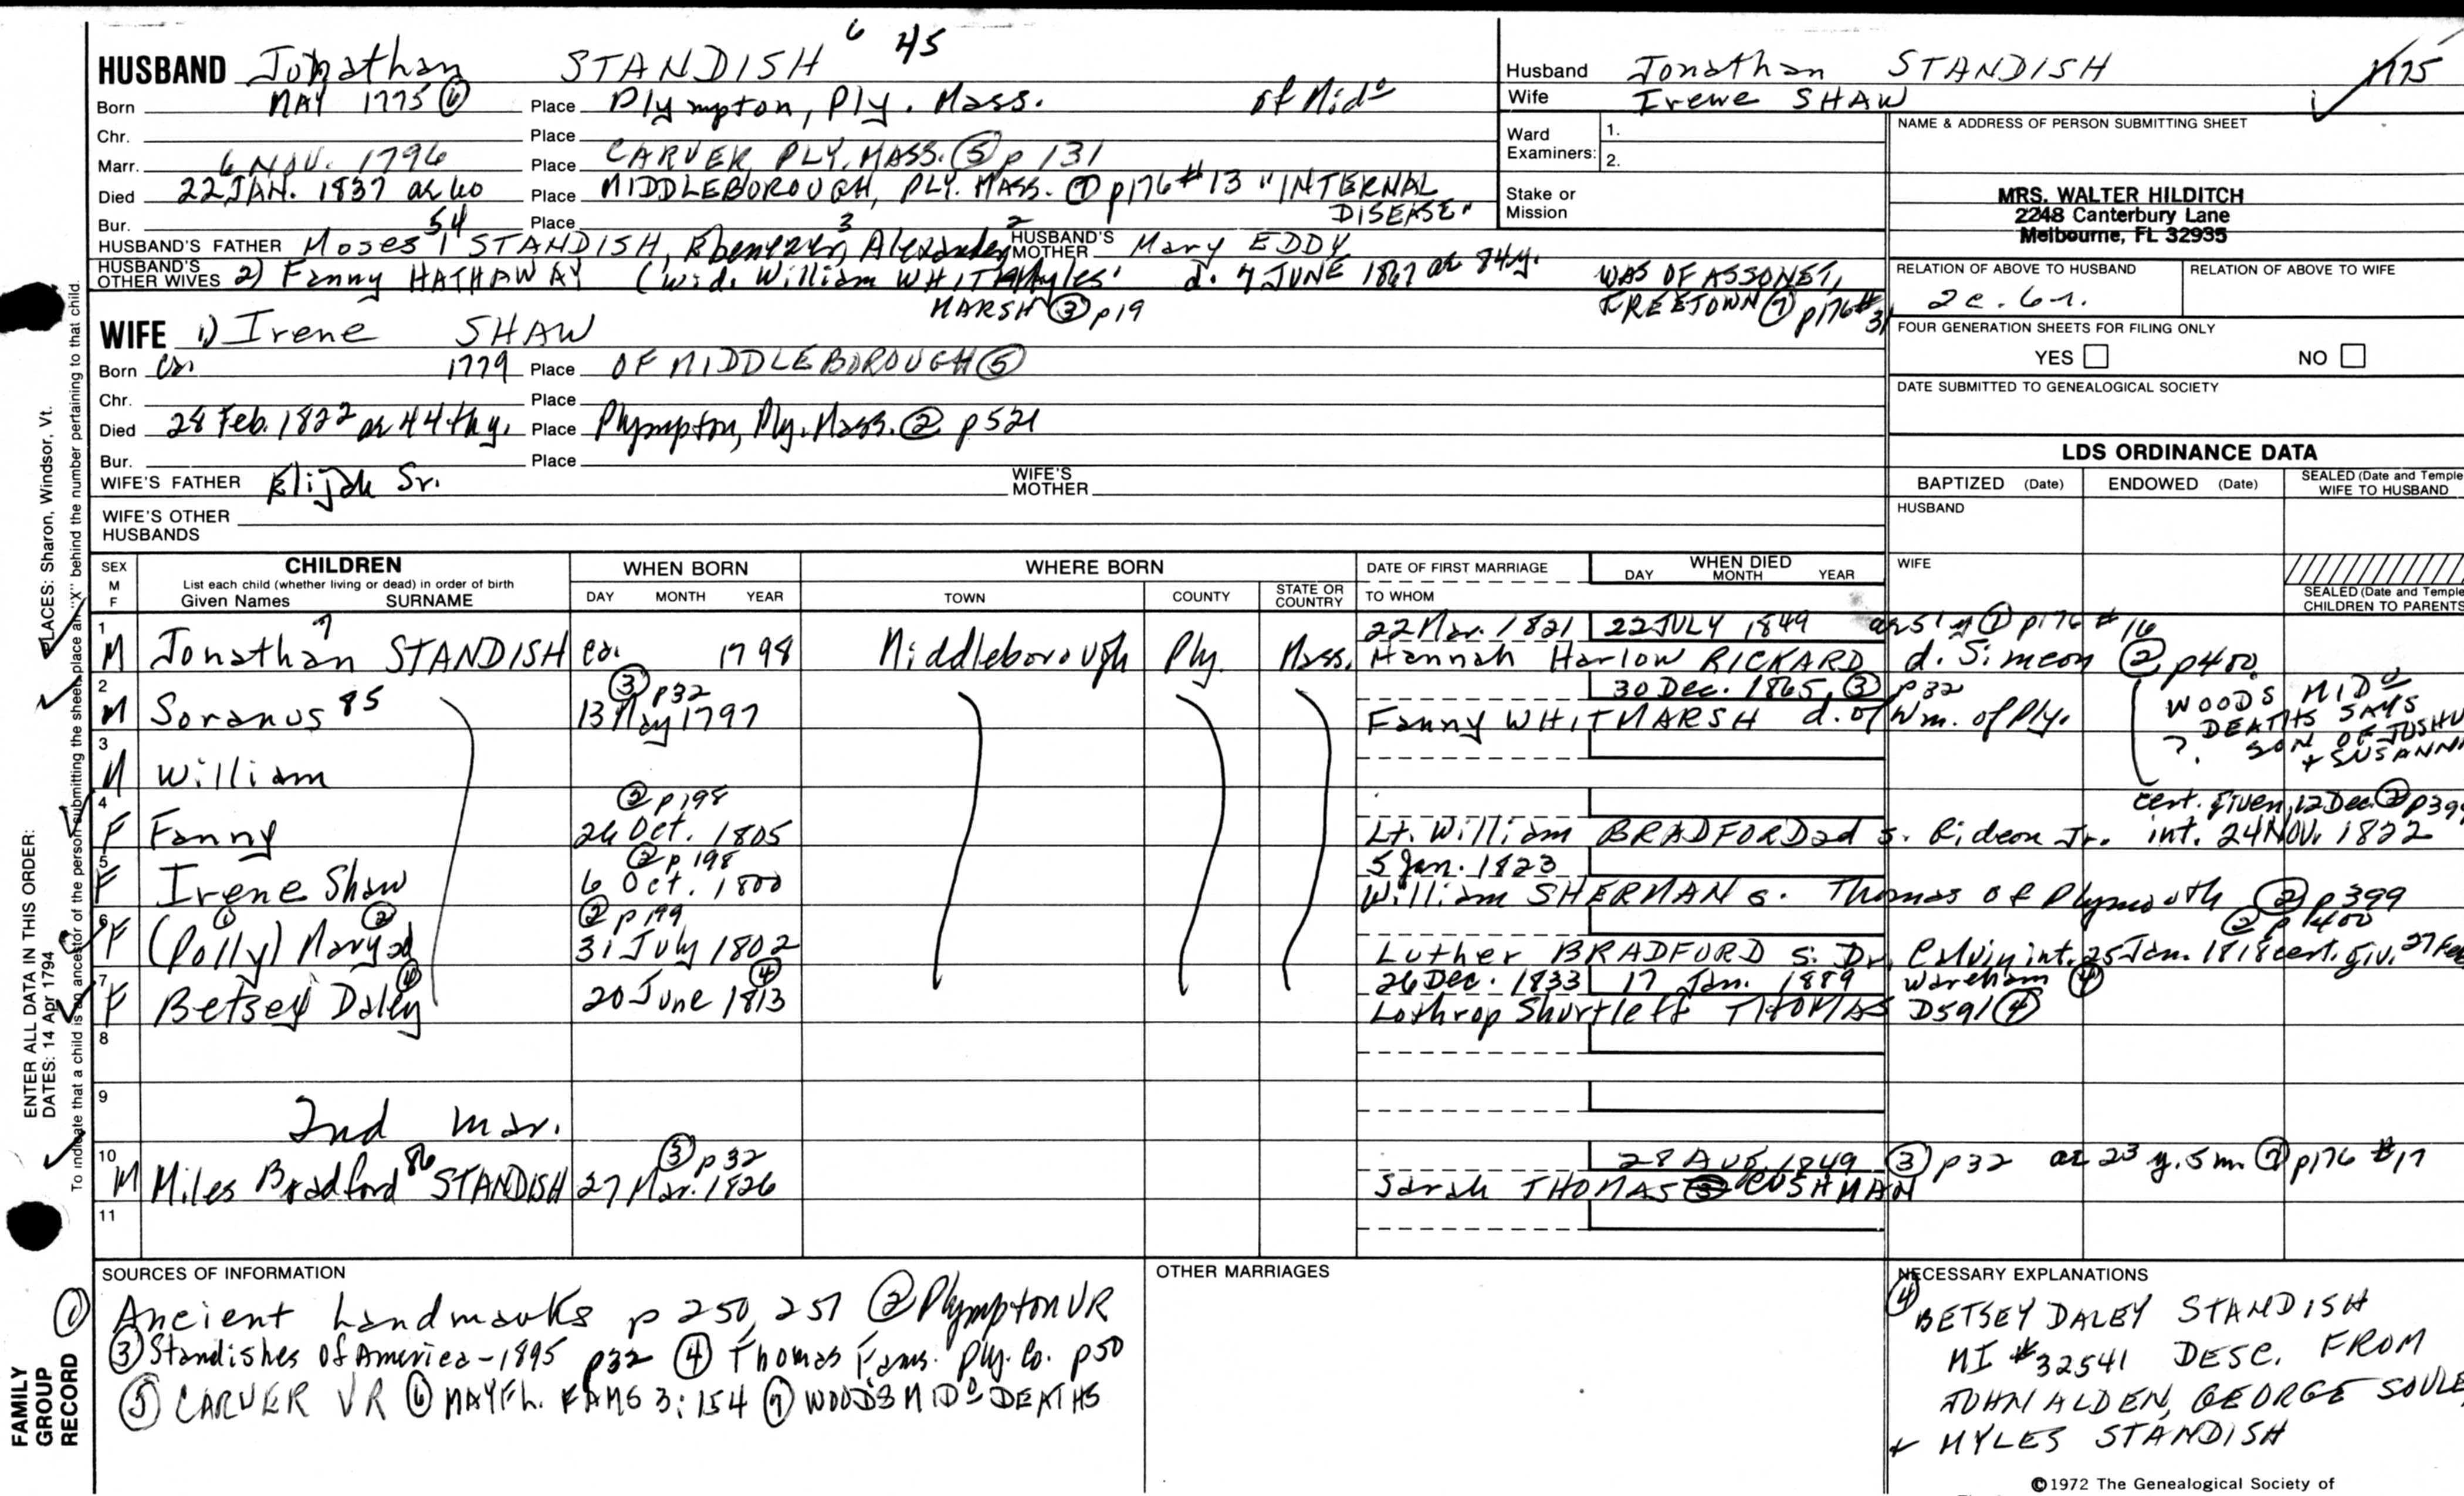 HUSBAND Jonathan STANDISH 6 45
Born MAY 1775 ⑥ Place Plympton, Ply. Mass. of Mido
Chr. Place
Marr. 6 NOV. 1796 Place CARVER PLY. MASS. ⑤ p 131
Died 22 JAN. 1837 ae 60 Place MIDDLEBOROUGH, PLY. MASS. ⑦ p176 #13 "INTERNAL DISEASE"
Bur. Place
HUSBAND'S FATHER Moses 54 STANDISH, Ebenezer 3, Alexander 2 HUSBAND'S MOTHER Mary EDDY
HUSBAND'S OTHER WIVES 2) Fanny HATHAWAY (wid. William WHIT Myles' d. 7 JUNE 1867 ae 84y. WAS OF ASSONET,
MARSH ③ p19 FREETOWN ⑦ p176 #31
WIFE 1) Irene SHAW
Born ca. 1779 Place OF MIDDLEBOROUGH ⑤
Chr. Place
Died 28 Feb. 1822 ae 44th y. Place Plympton, Ply. Mass. ② p521
Bur. Place
WIFE'S FATHER Elijah Sr. WIFE'S MOTHER
WIFE'S OTHER HUSBANDS
Husband Jonathan STANDISH 1775
Wife Irene SHAW
Ward Examiners: 1.
2.
Stake or Mission
NAME & ADDRESS OF PERSON SUBMITTING SHEET
MRS. WALTER HILDITCH
2248 Canterbury Lane
Melbourne, FL 32935
RELATION OF ABOVE TO HUSBAND RELATION OF ABOVE TO WIFE
2c. 6r.
FOUR GENERATION SHEETS FOR FILING ONLY
YES NO
DATE SUBMITTED TO GENEALOGICAL SOCIETY
LDS ORDINANCE DATA
BAPTIZED (Date) ENDOWED (Date) SEALED (Date and Temple WIFE TO HUSBAND
HUSBAND
WIFE
SEALED (Date and Temple CHILDREN TO PARENTS
SEX M F CHILDREN WHEN BORN WHERE BORN DATE OF FIRST MARRIAGE WHEN DIED
List each child (whether living or dead) in order of birth
Given Names SURNAME DAY MONTH YEAR TOWN COUNTY STATE OR COUNTRY TO WHOM DAY MONTH YEAR
1 22 Mar. 1821 22 JULY 1849 ae 51 y ⑦ p176 #16
M Jonathan 7 STANDISH ca. 1798 Middleborough Ply. Mass. Hannah Harlow RICKARD d. Simeon ② p400
2 ③ p32 30 Dec. 1865, ③ p32
M Soranus 85 13 May 1797 Fanny WHITMARSH d. of Wm. of Ply.
WOODS MIDo
DEATHS SAYS
? SON OF JOSHU
+ SUSANN
3
M William
4 ② p198 cert. given 12 Dec. ② p399
F Fanny 26 Oct. 1805 Lt. William BRADFORD 2d s. Gideon Jr. int. 24 NOV. 1822
5 ② p198 5 Jan. 1823
F Irene Shaw 6 Oct. 1800 William SHERMAN s. Thomas of Plymouth ② p399
6 ① ② ② p199 ② p400
F (Polly) Mary 2d 31 July 1802 Luther BRADFORD s. Dr. Calvin int. 25 Jan. 1818 cert. giv. 27 Feb
7 ④ ④ 26 Dec. 1833 17 Jan. 1889 Wareham ④
F Betsey Daley 20 June 1813 Lothrop Shurtleff THOMAS D591 ④
8
9
2nd mar.
10 ③ p32 28 AUG. 1849 ③ p32 ae 23 y. 5 m. ⑦ p176 #17
M Miles Bradford 86 STANDISH 27 Mar. 1826 Sarah THOMAS CUSHMAN
11
SOURCES OF INFORMATION
① Ancient Landmarks p 250, 251 ② Plympton VR
③ Standishes of America-1895 p32 ④ Thomas Fams. Ply. Co. p50
⑤ CARVER VR ⑥ MAYFL. FAMS 3:154 ⑦ WOOD'S MIDo DEATHS
OTHER MARRIAGES
NECESSARY EXPLANATIONS
④ BETSEY DALEY STANDISH
MI #32541 DESC. FROM
JOHN ALDEN, GEORGE SOULE,
+ MYLES STANDISH
©1972 The Genealogical Society of
ENTER ALL DATA IN THIS ORDER:
DATES: 14 Apr 1794
PLACES: Sharon, Windsor, Vt.
To indicate that a child is an ancestor of the person submitting the sheet, place an "X" behind the number pertaining to that child.
FAMILY
GROUP
RECORD